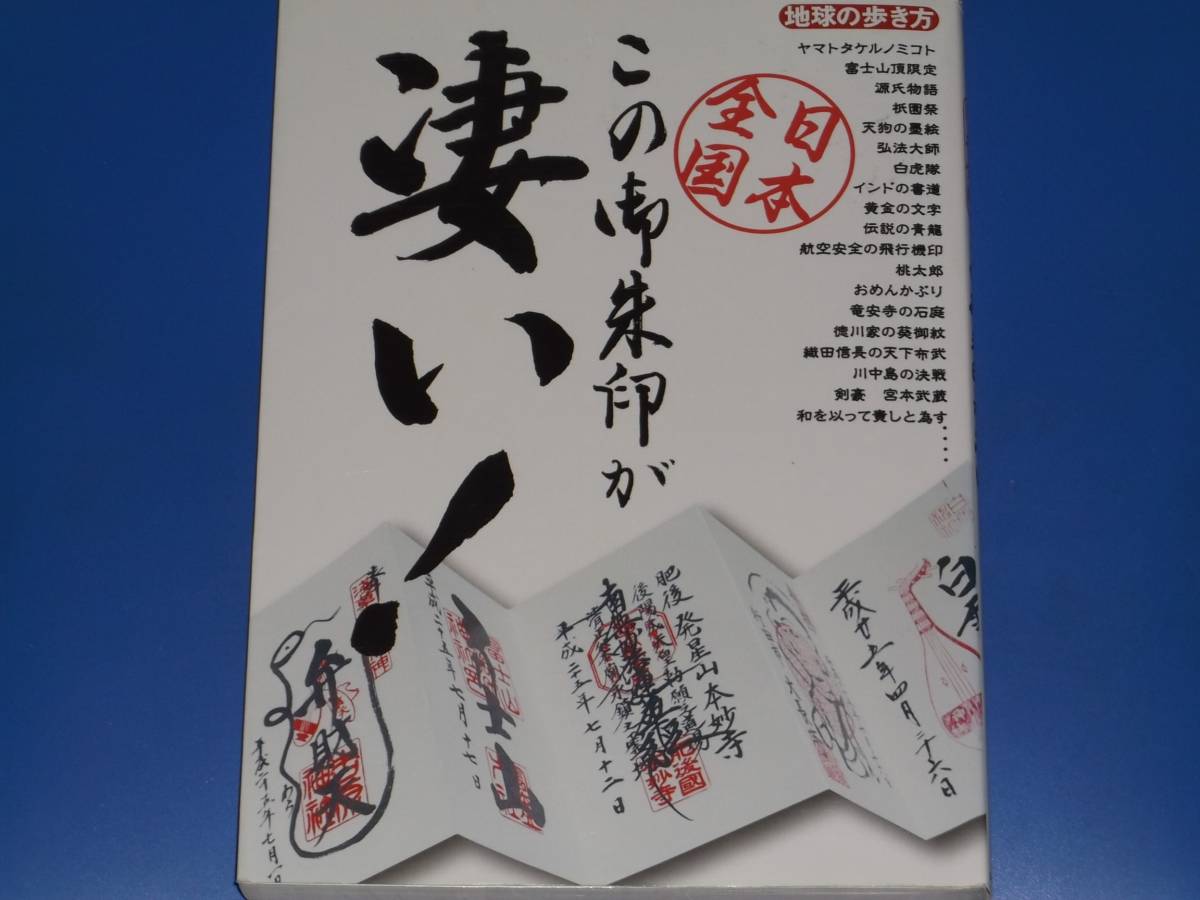 地球の歩き方
この御朱印が
凄い!
日本
全国
ヤマトタケルノミコト
富士山頂限定
源氏物語
祇園祭
天狗の墨絵
弘法大師
白虎隊
インドの書道
黄金の文字
伝説の青龍
航空安全の飛行機印
桃太郎
おめんかぶり
竜安寺の石庭
徳川家の葵御紋
織田信長の天下布武
川中島の決戦
剣豪 宮本武蔵
和を以って貴しと為す……
平成廿五年四月二十六日
肥後 発星山本妙寺
後陽成天皇勅願道場
平成二十五年七月十二日
肥後國
富士山
平成二十五年七月十七日
弁財天